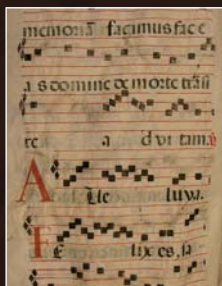 memoriā facimus fac e
as domine de morte trāsi
re a d vi tam.
Alle luya.
Fe lix es, sa